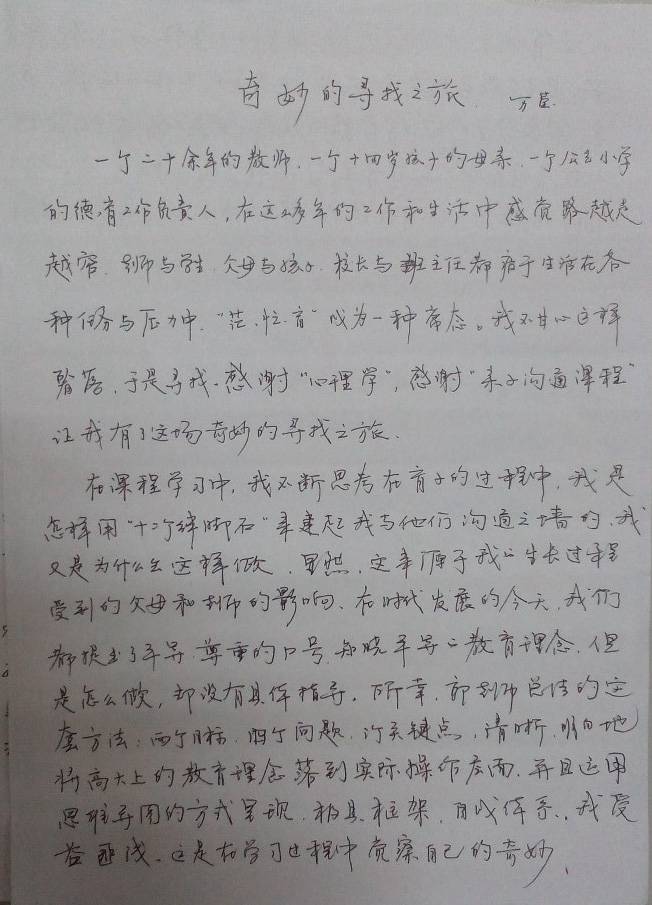 奇妙的寻找之旅 万茵
一个二十余年的教师、一个十四岁孩子的母亲、一个公立小学
的德育工作负责人，在这么多年的工作和生活中感觉路越走
越窄，老师与学生、父母与孩子、校长与班主任都疲于生活在各
种任务与压力中，“茫、忙、盲”成为一种常态。我不甘心这样
于是寻找。感谢“心理学”，感谢“亲子沟通课程”
让我有了这场奇妙的寻找之旅。
在课程学习中，我不断思考在育子的过程中，我是
怎样用“十二个绊脚石”来建起我与他们沟通之墙的，我
又是为什么会这样做，显然，这来源于我的生长过程
受到的父母和老师的影响、在时代发展的今天，我们
都提出了平等、尊重的口号、知晓平等的教育理念，但
是怎么做，却没有具体指导。所幸，郭老师总结的这
套方法：两个目标、四个问题、六关键点，清晰、明白地
将高大上的教育理念落到实际操作层面，并且运用
思维导图的方式呈现，极具框架，自成体系，我受
益匪浅。这是在学习过程中觉察自己的奇妙、